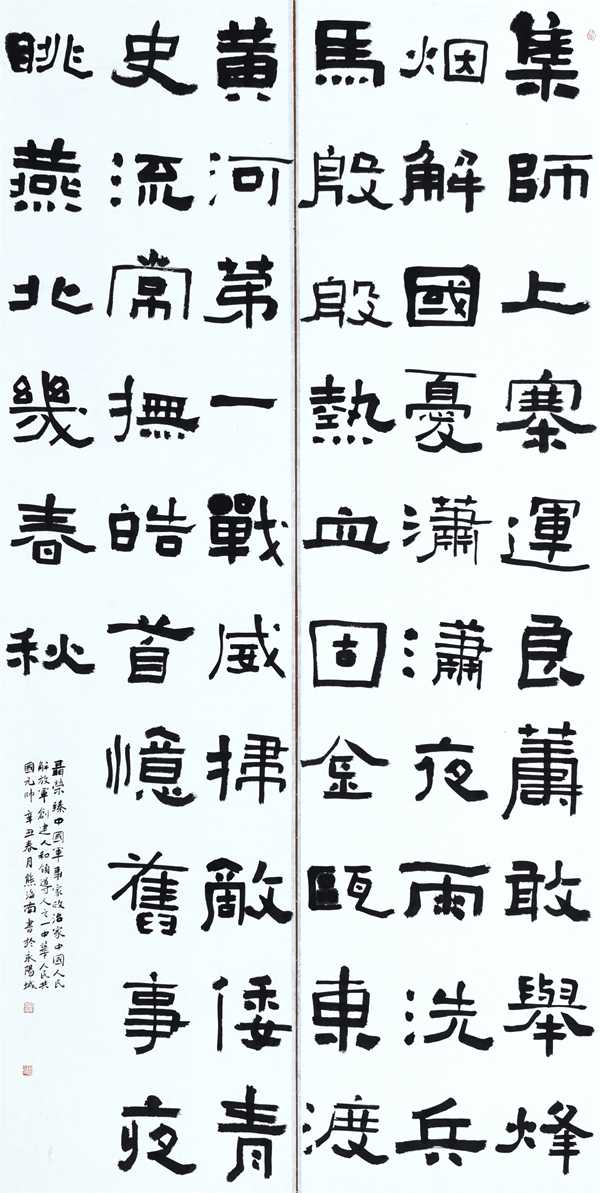 集師上寨運良籌敢舉烽
烟解國憂瀟瀟夜雨洗兵
馬殷殷熱血固金甌東渡
黄河苐一戰威掃敵倭青
史流常撫皓首憶舊事夜
眺燕北幾春秋
聶榮臻中國軍事家政治家中國人民
解放軍創建人和領導人之一中華人民共
國元帥 辛丑春月熊海南書於永陽城